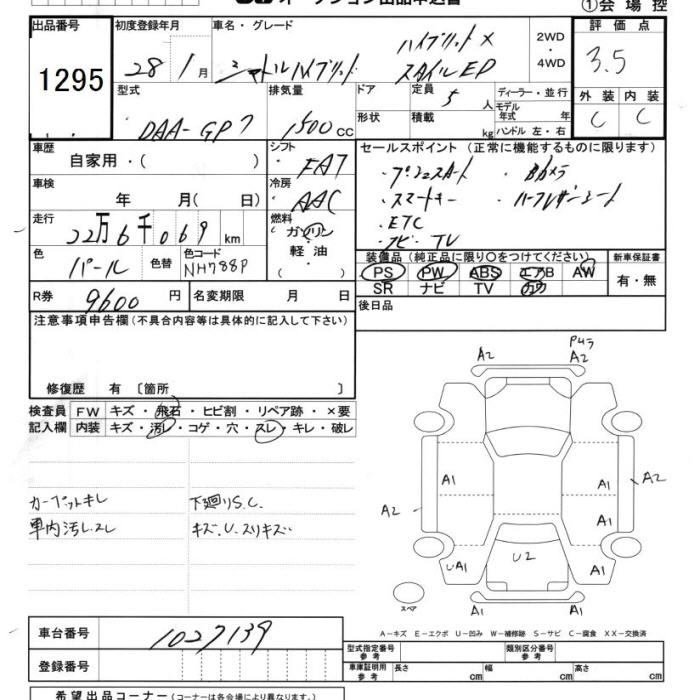 ①会場控
出品番号 初度登録年月 車名・グレード 2WD ・ 4WD 評価点
1295 28年1月 シャトルハイブリッド ハイブリットX スタイルEP 3.5
型式 排気量 ドア 定員 5人 ディーラー・並行 外装 内装
DAA-GP7 1500cc 形状 積載 kg モデル年式 年 ハンドル 左・右 C C
車歴 自家用・( ) シフト FA7 セールスポイント (正常に機能するものに限ります)
・プッシュスタート ・Bカメラ
車検 年 月( 日) 冷房 AAC ・スマートキー ・ハーフレザーシート
・ETC
走行 22万6千069km 燃料 ガソリン ・ナビ・TV
・軽油
・( )
色 パール 色替 色コード NH788P 装備品 (純正品に限り○をつけてください) 新車保証書
PS PW ABS エアB AW 有・無
SR ナビ TV
R券 9600円 名変期限 月 日 後日品
注意事項申告欄 (不具合内容等は具体的に記入して下さい)
修復歴 有 〔箇所 〕
検査員 FW キズ・飛石・ヒビ割・リペア跡・×要
記入欄 内装 キズ・汚レ・コゲ・穴・スレ・キレ・破レ
カーペットキレ 下廻りS.C.
車内汚レスレ キズ.U.スリキズ
A2 A2
A1 A1 A2
A2 A1
UA1 U2 A1
スペア A1 A1
A-キズ E-エクボ U-凹み W-補修跡 S-サビ C-腐食 XX-交換済
車台番号 1027139
型式指定番号 参考 類別区分番号 参考
登録番号 車庫証明用 参考 長さ cm 幅 cm 高さ cm
希望出品コーナー (コーナーは各会場により異なります。)